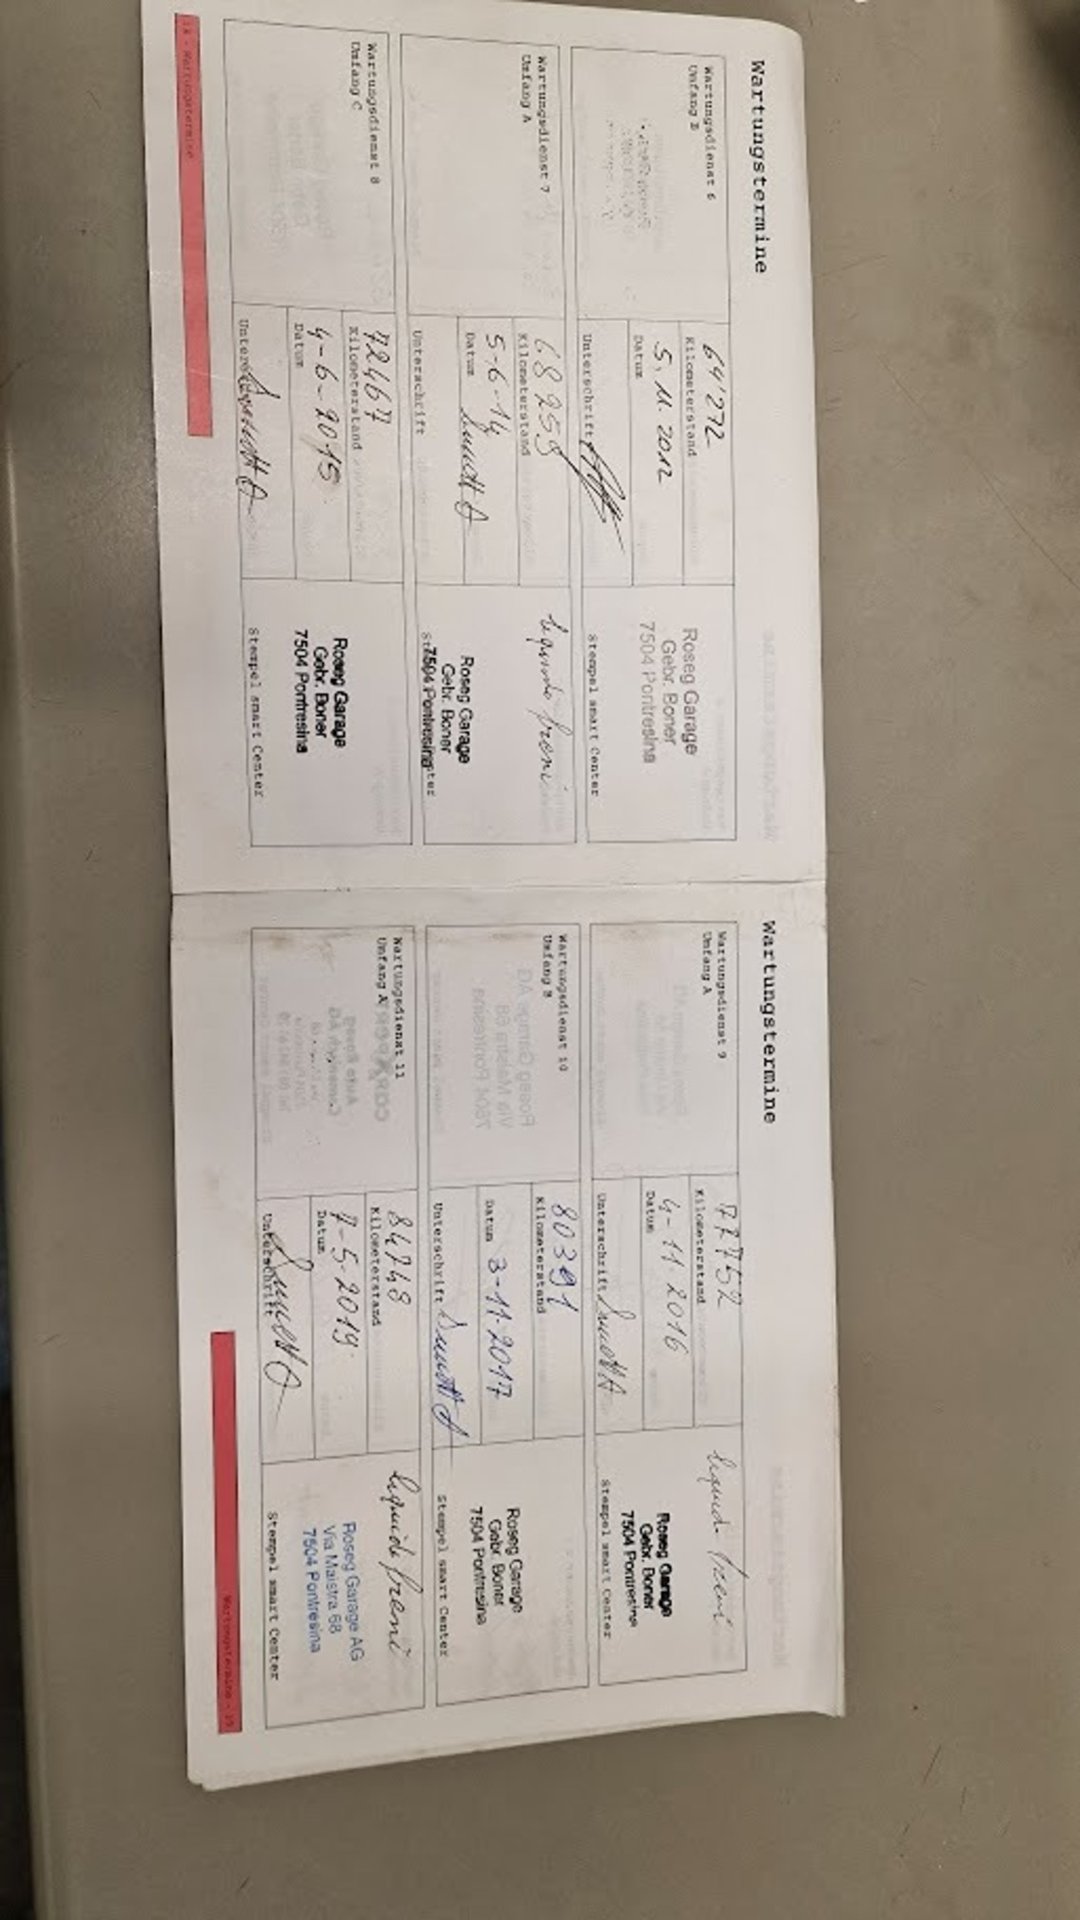 Wartungstermine
Wartungsdienst 6
Umfang B
64'272
Kilometerstand
5. 11. 2012
Datum
Unterschrift
Roseg Garage
Gebr. Boner
7504 Pontresina
Stempel smart Center
Wartungsdienst 7
Umfang A
68259
Kilometerstand
5-6-14
Datum
Unterschrift
liquido freni
Roseg Garage
Gebr. Boner
7504 Pontresina
Stempel smart Center
Wartungsdienst 8
Umfang C
72467
Kilometerstand
4-6-2015
Datum
Unterschrift
Roseg Garage
Gebr. Boner
7504 Pontresina
Stempel smart Center
18 - Wartungstermine
Wartungstermine
Wartungsdienst 9
Umfang A
77752
Kilometerstand
4-11 2016
Datum
Unterschrift
liquid. freni
Roseg Garage
Gebr. Boner
7504 Pontresina
Stempel smart Center
Wartungsdienst 10
Umfang B
80391
Kilometerstand
Datum 3-11-2017
Unterschrift
Roseg Garage
Gebr. Boner
7504 Pontresina
Stempel smart Center
Wartungsdienst 11
Umfang A
84748
Kilometerstand
7-5-2019
Datum
Unterschrift
liquido freni
Roseg Garage AG
Via Maistra 68
7504 Pontresina
Stempel smart Center
Wartungstermine - 19